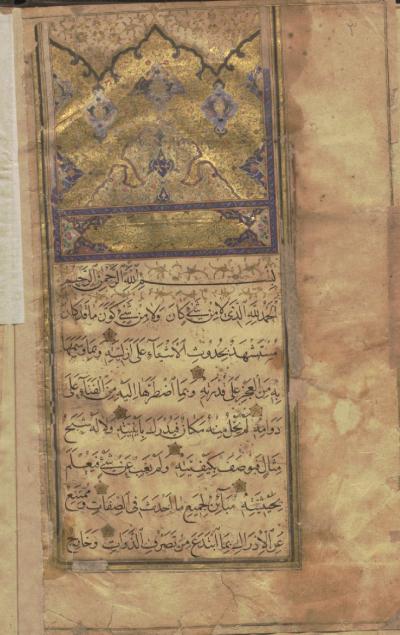 بسم الله الرحمن الرحيم
الحمد لله الذي لا من شيء كان ولا من شيء كون ما قد كان
مستشهد بحدوث الأشياء على أزليته وبما وسمها
به من العجز على قدرته وبما اضطرها إليه من الفناء على
دوامه لم يخل منه مكان فيدرك بأينيته ولا له شبح
مثال فيوصف بكيفيته ولم يغب عن شيء فيعلم
بحيثيته مباين لجميع ما أحدث في الصفات وممتنع
عن الإدراك بما ابتدع من تصرف الذوات وخارج